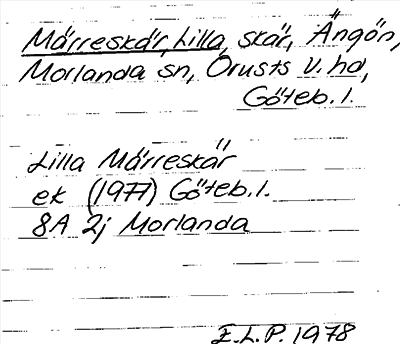 Märreskär, Lilla, skär, Ängön,
Morlanda sn, Orusts v. hd,
Göteb. l.
Lilla Märreskär
ek (1977) Göteb. l.
8A 2j Morlanda
E.L.P. 1978